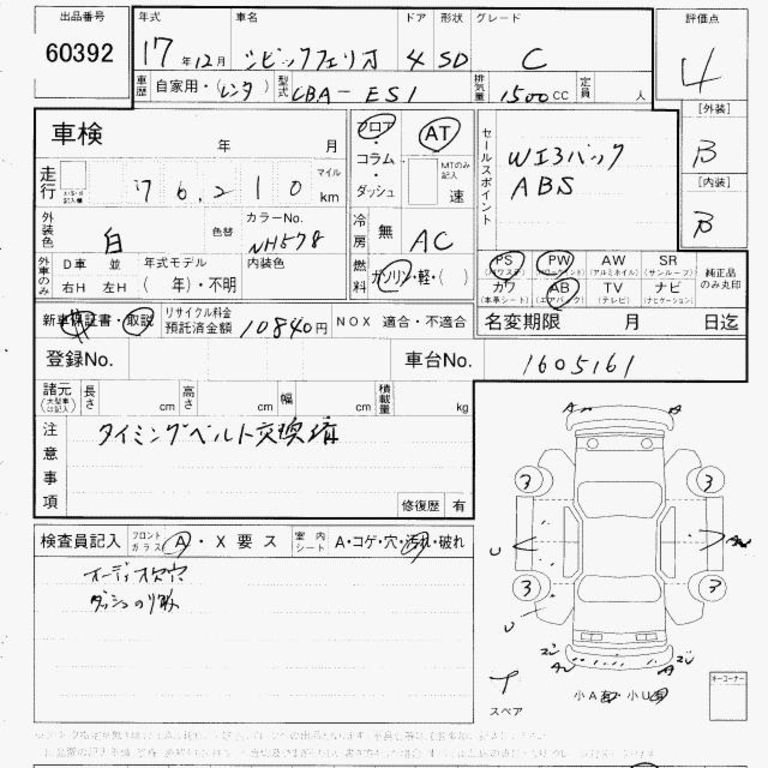 出品番号 年式 車名 ドア 形状 グレード 評価点
60392 17年12月 シビックフェリオ 4 SD C 4
車歴 自家用・(レンタ) 型式 CBA-ES1 排気量 1500CC 定員 人
[外装]
B
[内装]
B
車検 年 月
フロア・コラム・ダッシュ AT MTのみ記入 速
セールスポイント WエアBック
ABS
走行 マイル km
76,210
外装色 白 色替 カラーNo. NH578 内装色
冷房 無 AC
外車のみ D車 並 右H 左H 年式モデル ( 年)・不明
燃料 ガソリン・軽・( )
PS (パワステ) PW (パワーウィンド) AW (アルミホイル) SR (サンルーフ) 純正品のみ丸印
カワ (本革シート) AB (エアバック) TV (テレビ) ナビ (ナビゲーション)
新車保証書・取説 リサイクル料金預託済金額 10840円 NOX 適合・不適合 名変期限 月 日迄
登録No. 車台No. 1605161
諸元 (大型車は記入) 長さ cm 高さ cm 幅 cm 積載量 kg
注意事項 タイミングベルト交換済
修復歴 有
検査員記入 フロントガラス A・X要ス 室内シート A・コゲ・穴・汚れ・破れ
オーディオ穴
ダッシュのり跡
A A
3 3
U
3 3
U
A A
スペア
小A 小U
キーコーナー